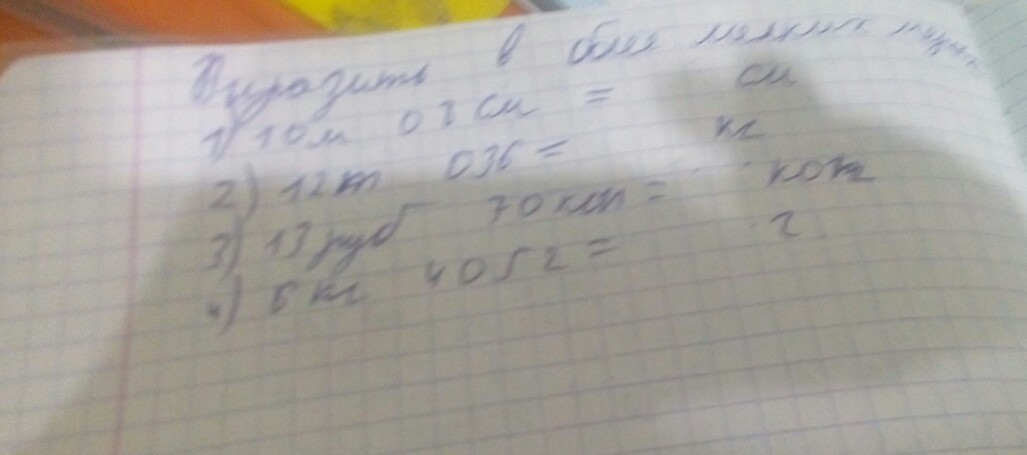 Выразить в более мелких мерах
1) 10 м 08 см = см
2) 12 т 036 = кг
3) 13 руб 70 коп = коп
4) 5 кг 405 г = г.